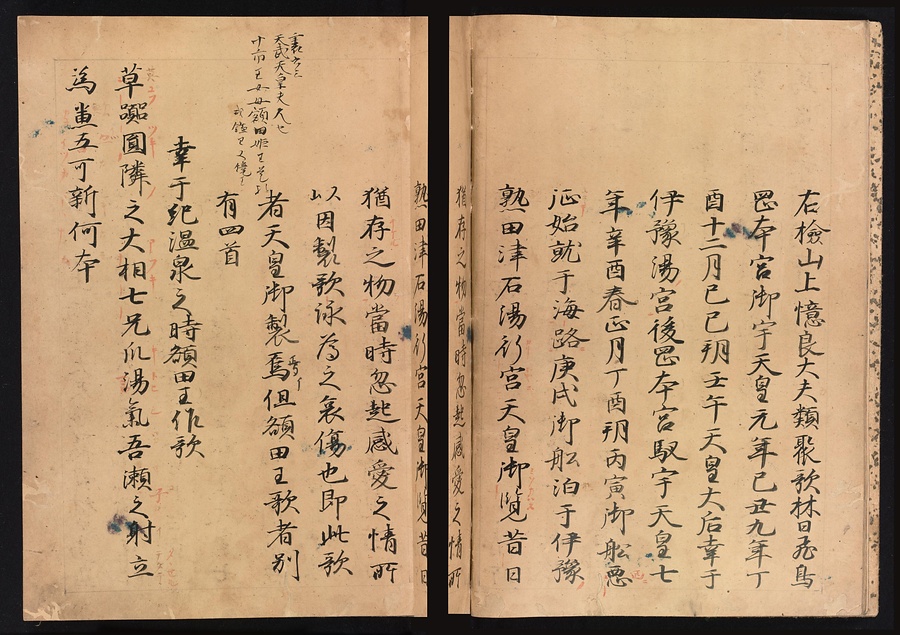 右檢山上憶良大夫類聚歌林曰飛鳥
岡本宮御宇天皇元年己丑九年丁
酉十二月己巳朔壬午天皇大后幸于
伊豫湯宮後岡本宮馭宇天皇七
年辛酉春正月丁酉朔丙寅御舩西
征始就于海路庚戌御舩泊于伊豫
熟田津石湯行宮天皇御覽昔日
猶存之物當時忽起感愛之情所
熟田津石湯行宮天皇御覽昔日
猶存之物當時忽起感愛之情所
以因製歌詠為之哀傷也即此歌
者天皇御製焉但額田王歌者別
有四首
天武天皇夫人也
十市王女母額田姫王是
或鏡王
幸于紀温泉之時額田王作歌
草躑圓隣之大相七兄爪湯氣吾瀬之射立
為兼五可新何本